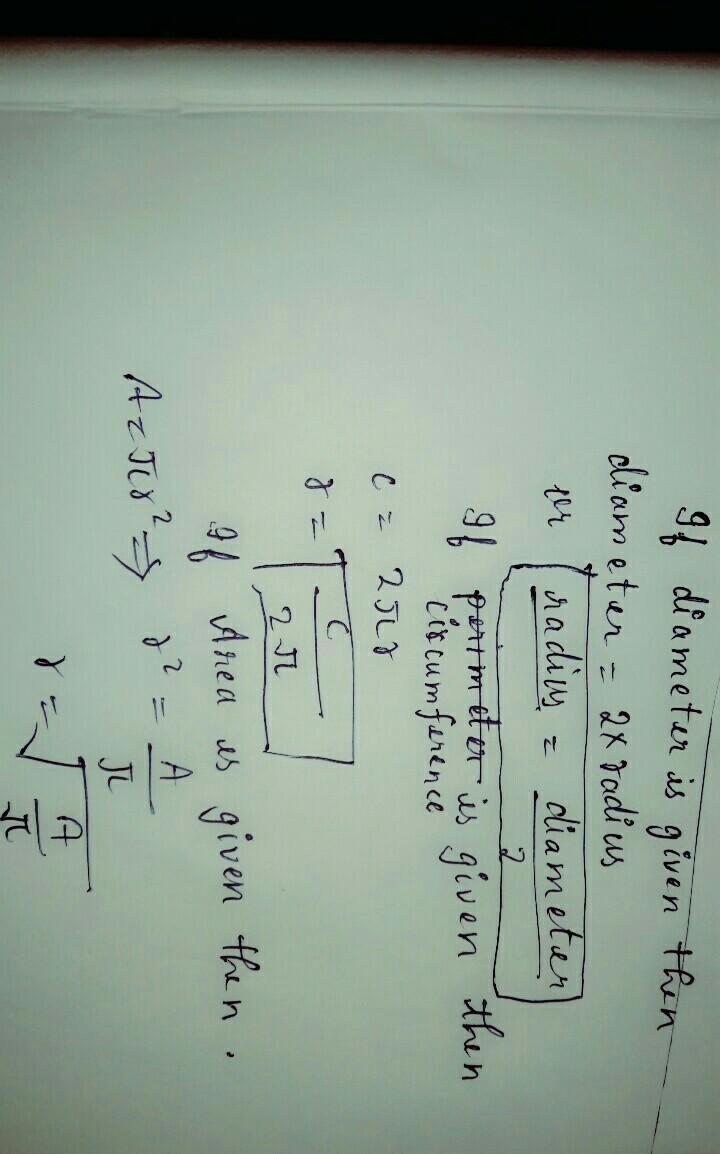 If diameter is given then
diameter = 2x radius
or radius = diameter / 2
If perimeter is given then
circumference
C = 2πr
r = C / 2π
If Area is given then.
A = πr² ⇒ r² = A / π
r = √(A / π)